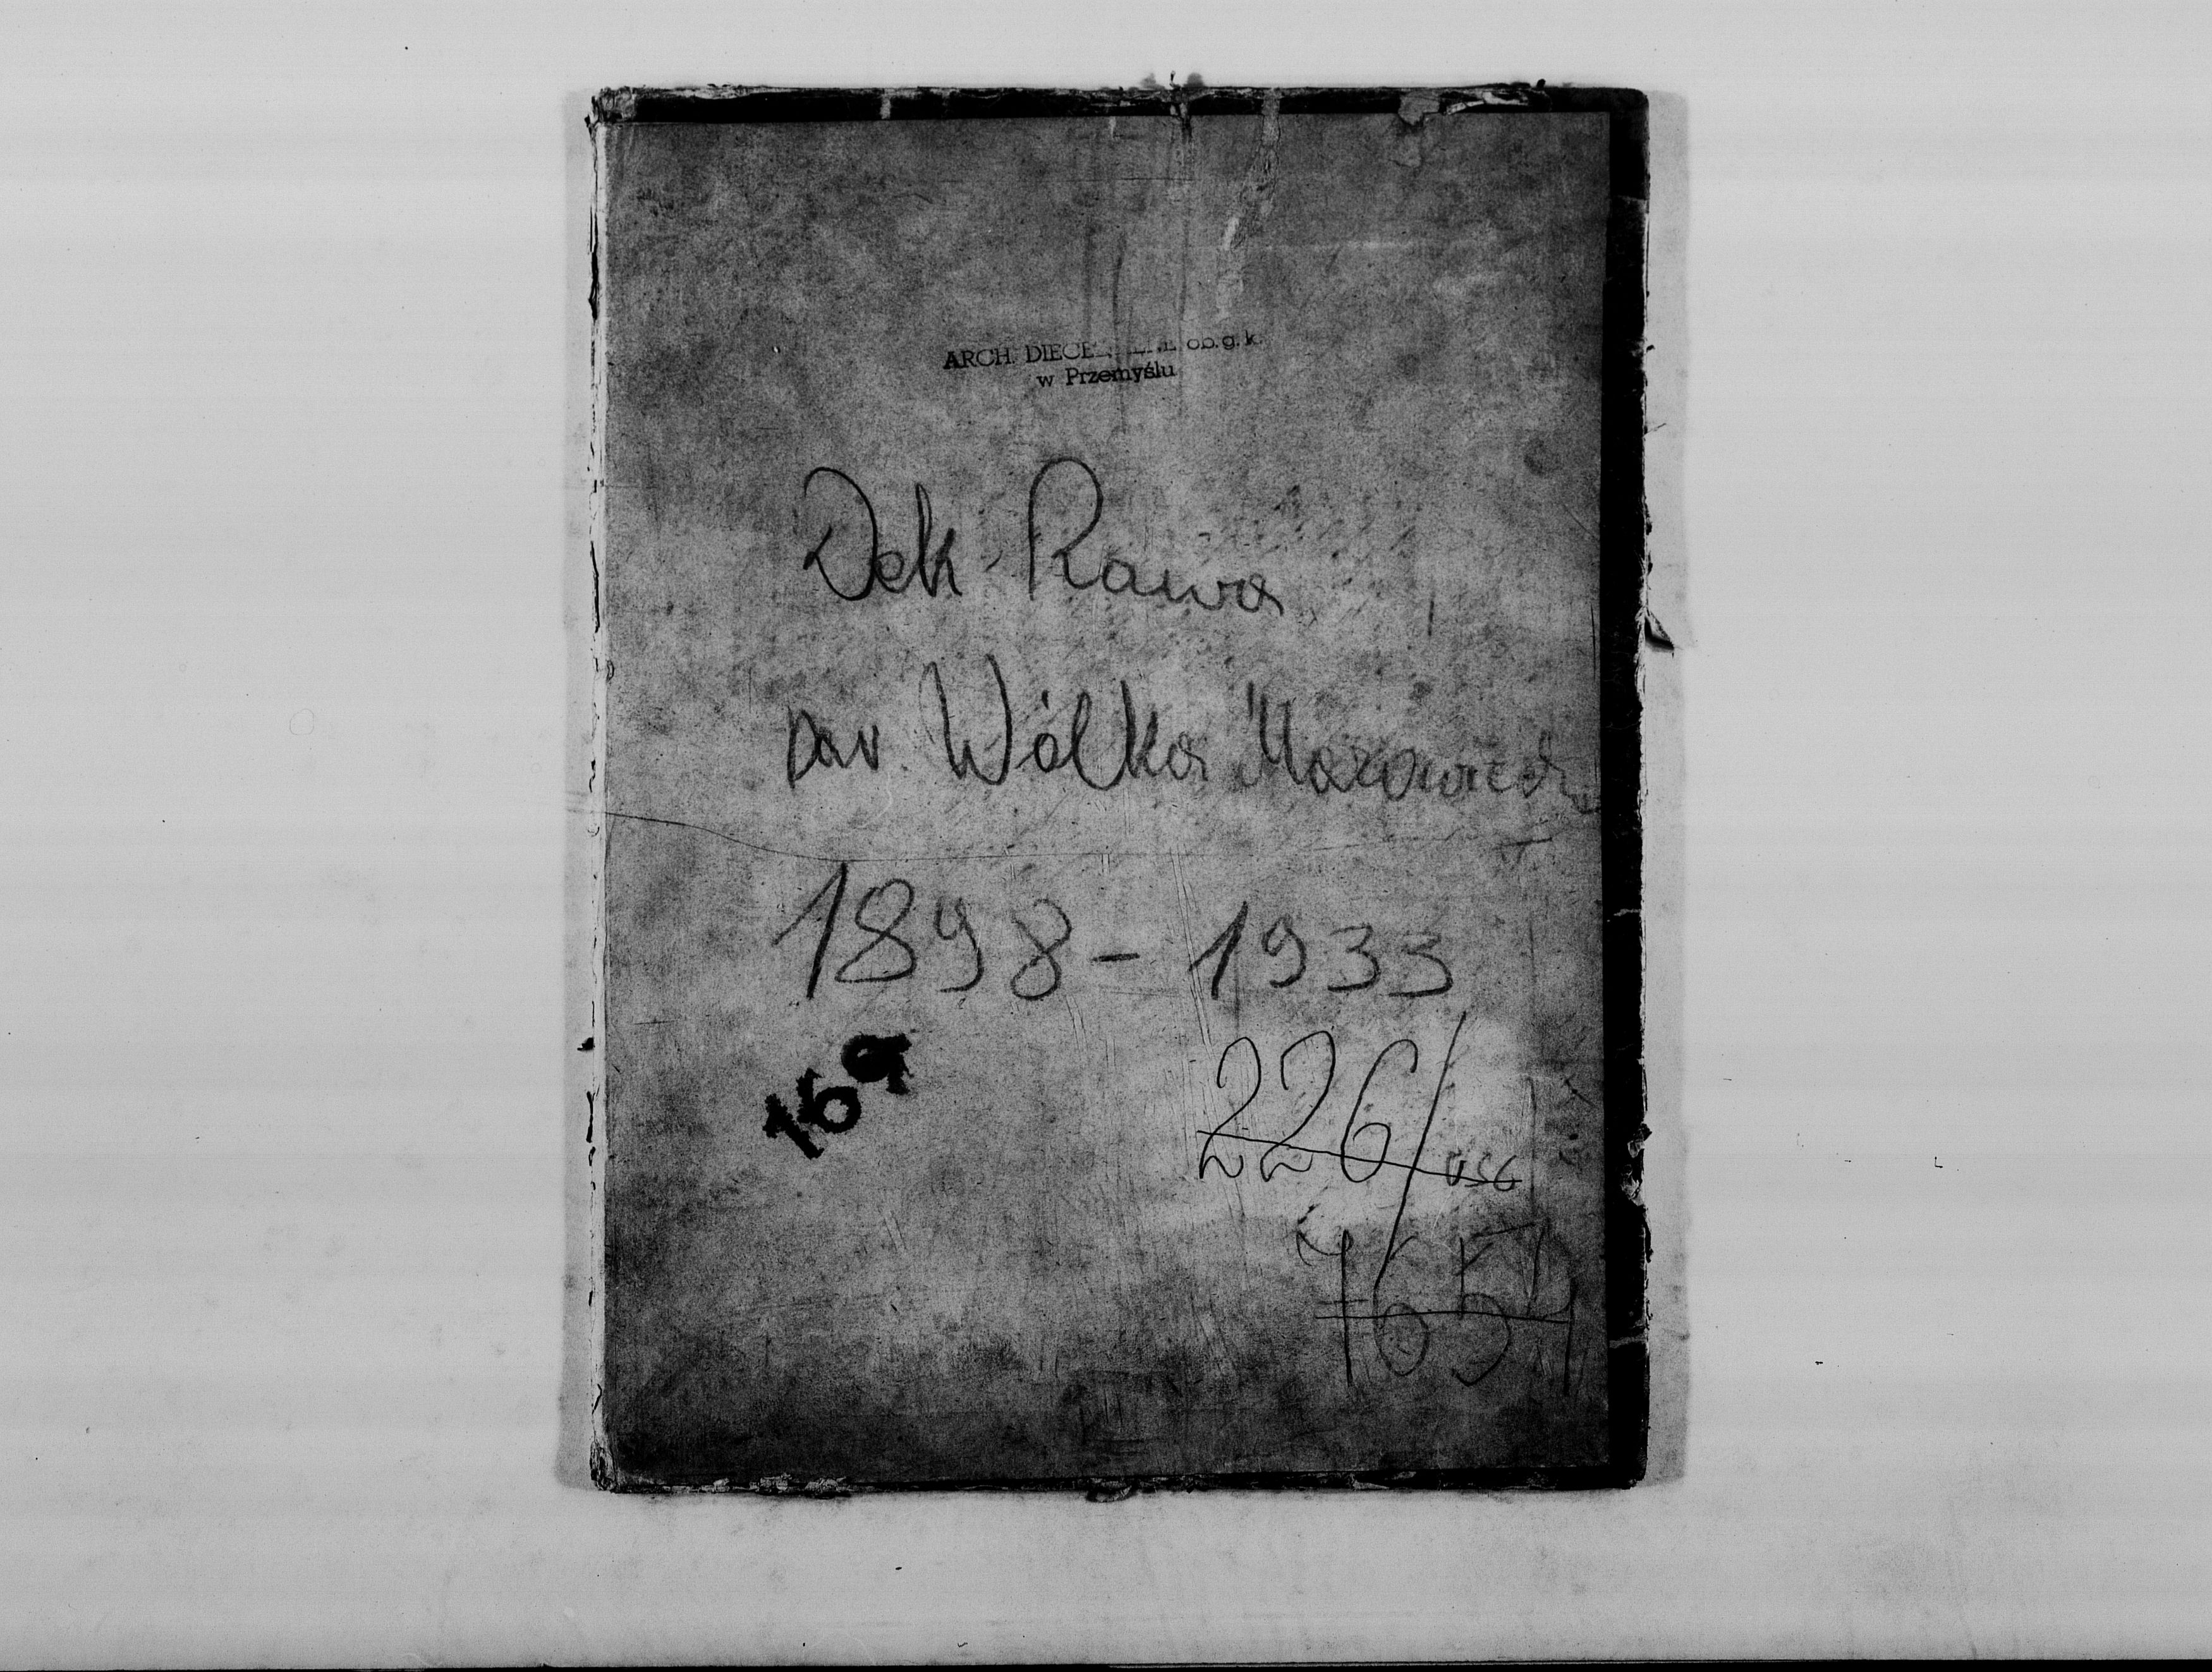 ARCH. ob. g. k.
w Przemyślu
Dek. Rawa
par. Wólka Mazowiecka
1898 - 1933
169
226/USC